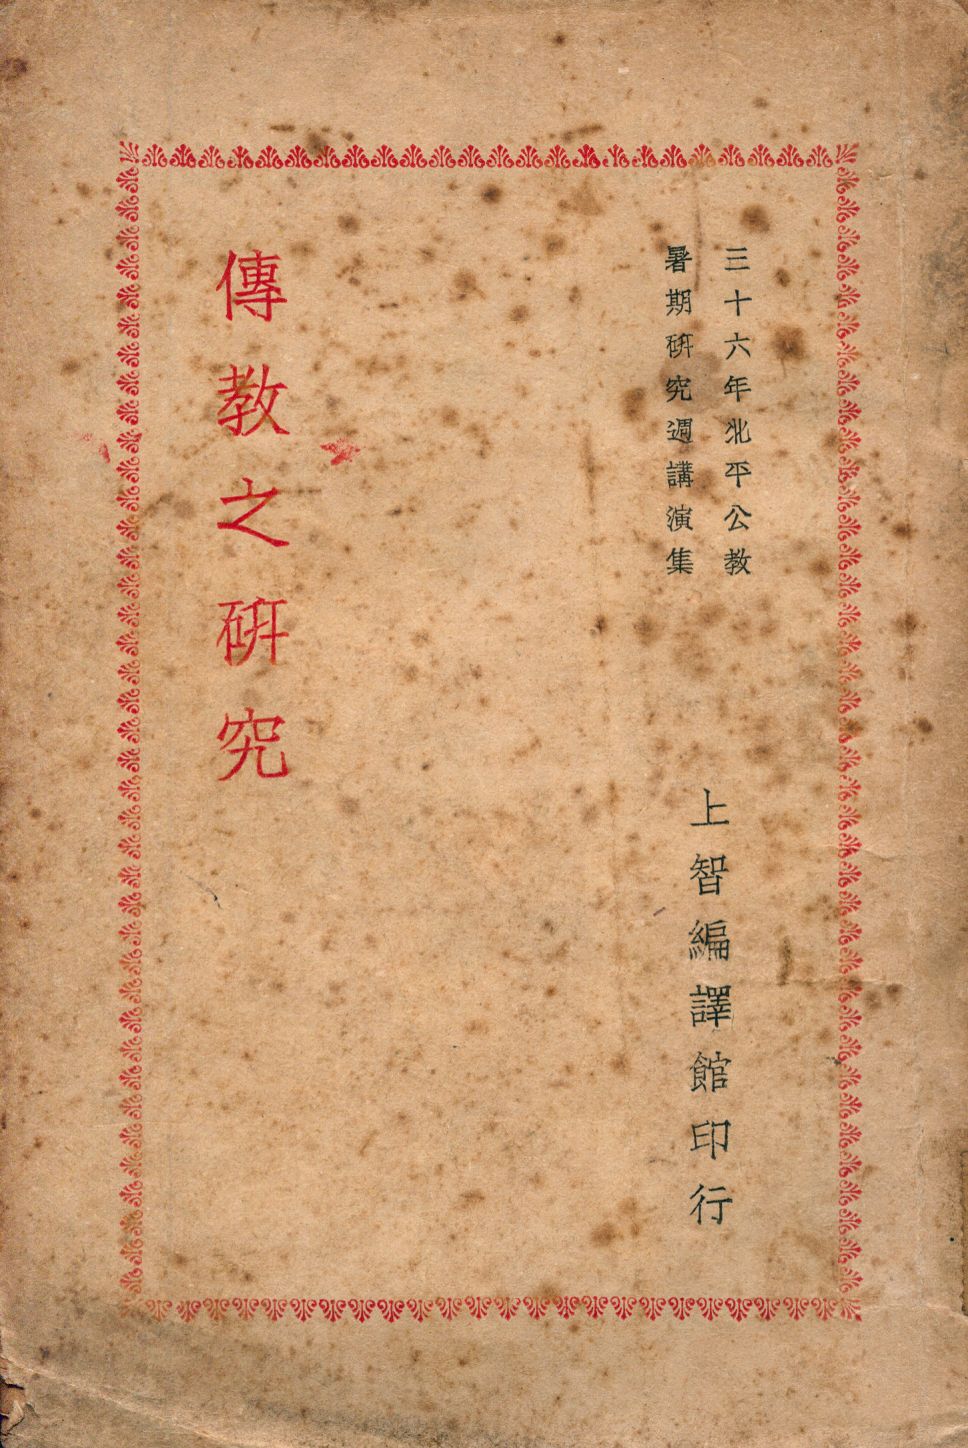 三十六年北平公教
暑期硏究週講演集
上智編譯館印行
傳教之硏究